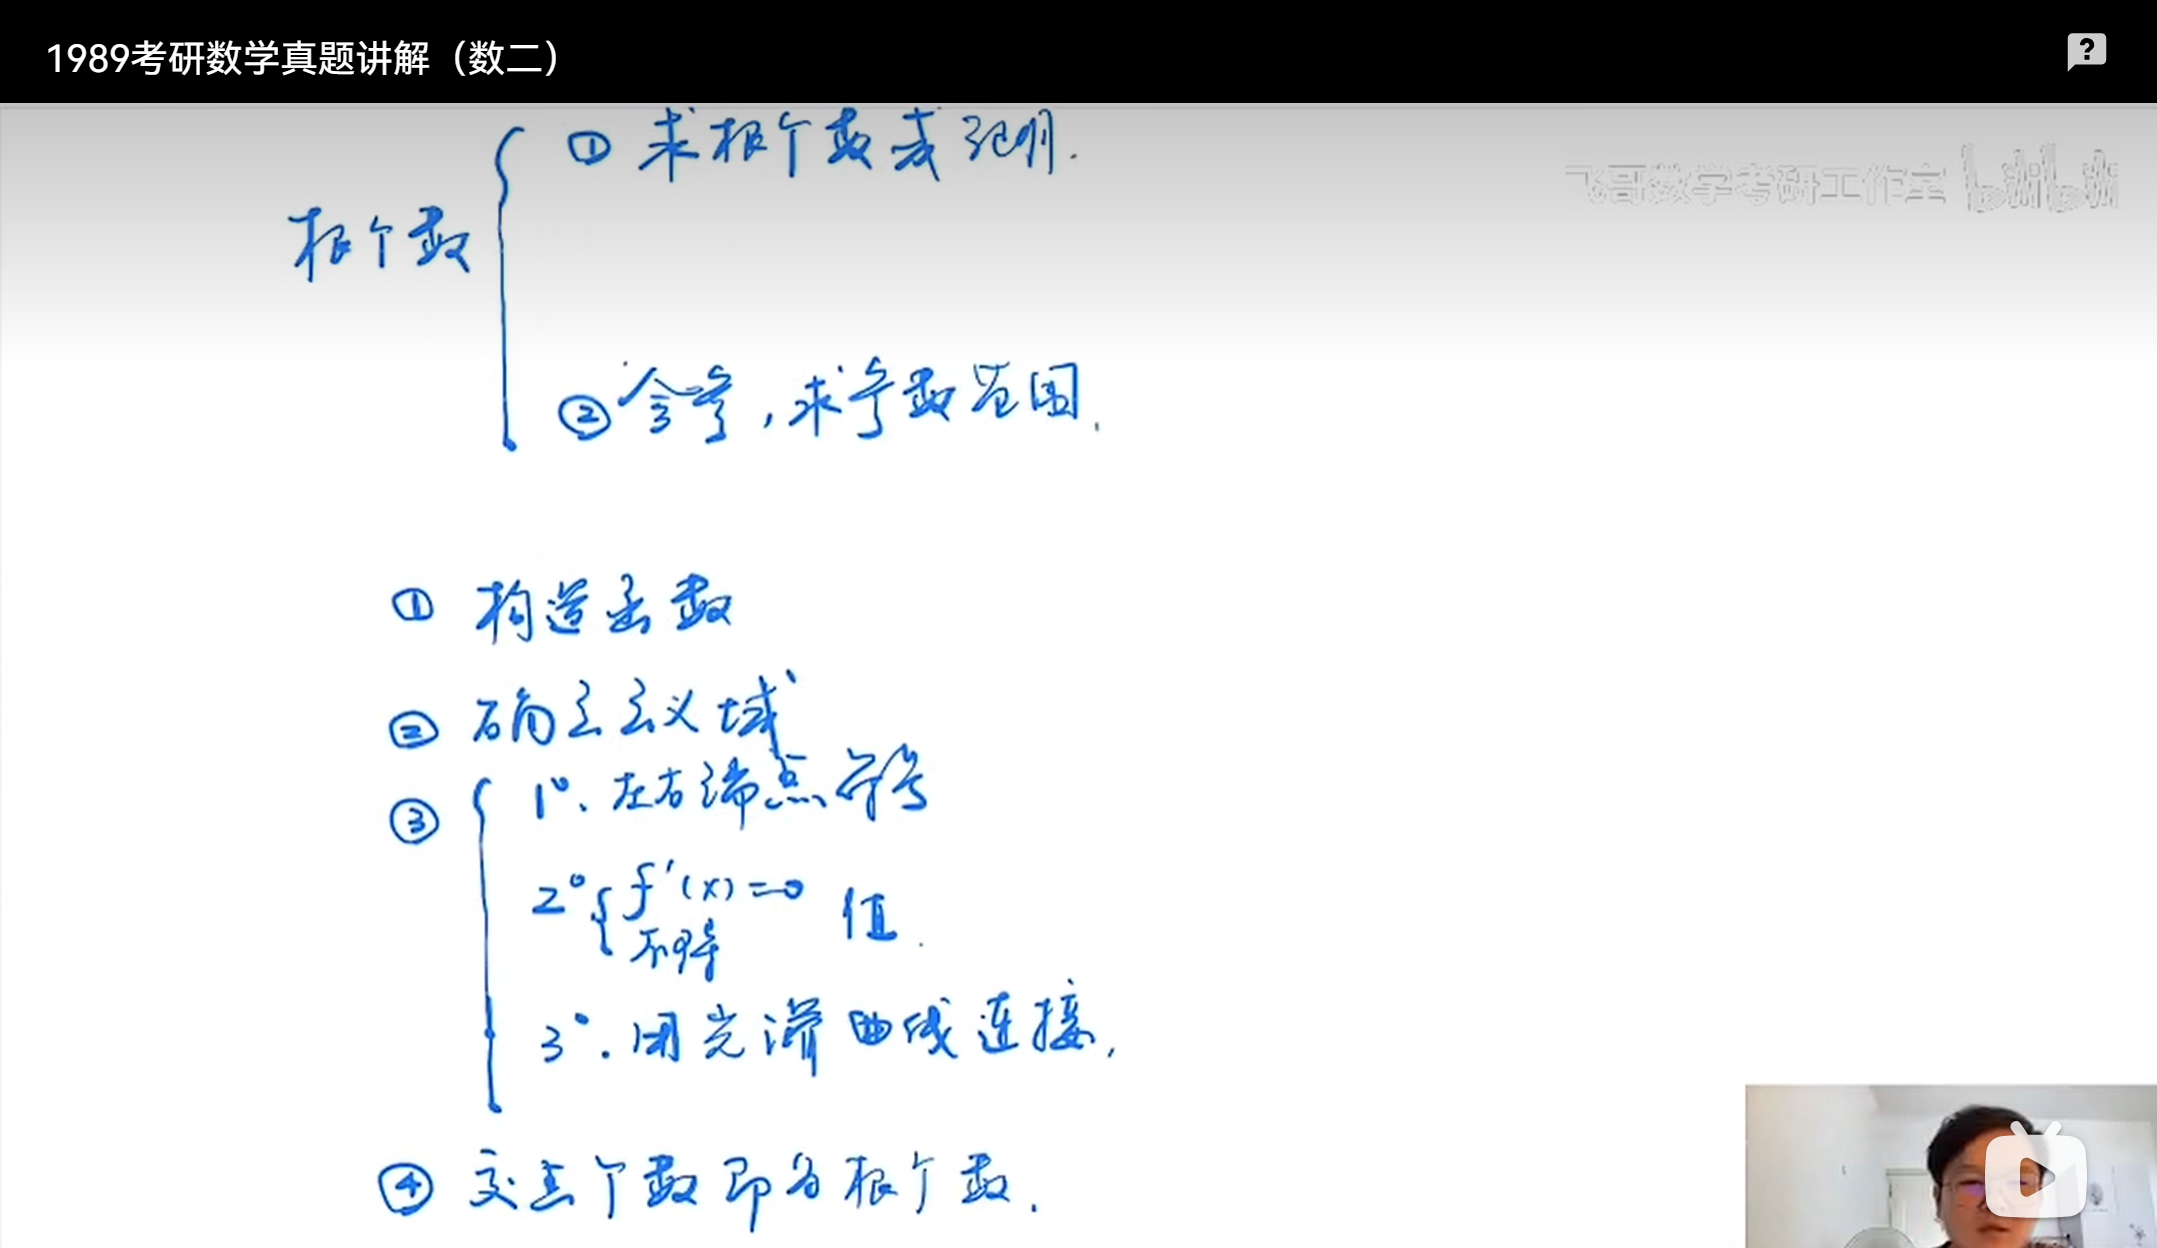 1989考研数学真题讲解（数二）
飞哥数学考研工作室 bilibili
根个数
① 求根个数或证明.
② 含参，求参数范围.
① 构造函数
② 确定定义域
③ 1°. 左右端点符号
2° f'(x)=0 值.
不可导
3°. 用光滑曲线连接.
④ 交点个数即为根个数.